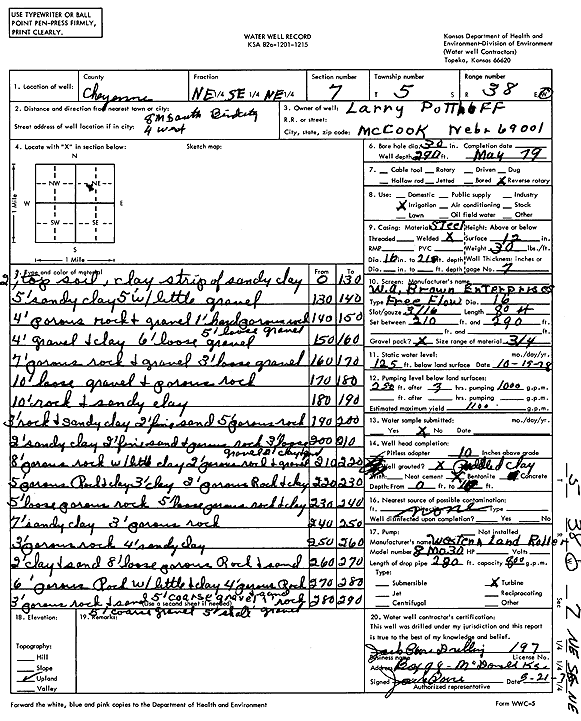 USE TYPEWRITER OR BALL
POINT PEN-PRESS FIRMLY,
PRINT CLEARLY.
WATER WELL RECORD
KSA 82a-1201-1215
Kansas Department of Health and
Environment-Division of Environment
(Water well Contractors)
Topeka, Kansas 66620
1. Location of well:
County
Cheyenne
Fraction
NE 1/4 SE 1/4 NE 1/4
Section number
7
Township number
T 5 S
Range number
R 38 E W
2. Distance and direction from nearest town or city:
Street address of well location if in city:
4 West
3. Owner of well: Larry Potthoff
R.R. or street:
City, state, zip code: McCook Nebr 69001
4. Locate with "X" in section below:
Sketch map:
N
NW NE
W E
SW SE
S
1 Mile
1 Mile
6. Bore hole dia. 30 in. Completion date
Well depth 290 ft. May 79
7. Cable tool Rotary Driven Dug
Hollow rod Jetted Bored X Reverse rotary
8. Use: Domestic Public supply Industry
X Irrigation Air conditioning Stock
Lawn Oil field water Other
9. Casing: Material Steel Height: Above or below
Threaded Welded X Surface 12 in.
RMP PVC Weight 30 lbs./ft.
Dia. 16 in. to 210 ft. depth Wall Thickness: inches or
Dia. in. to ft. depth gage No. 7
10. Screen: Manufacturer's name
W.A. Brown Enterprises
Type Free Flow Dia. 16
Slot/gauze 3/16 Length 80 ft
Set between 210 ft. and 290 ft.
ft. and ft.
Gravel pack? X Size range of material 3/4
11. Static water level: mo./day/yr.
125 ft. below land surface Date 10-19-78
12. Pumping level below land surfaces:
250 ft. after 3 hrs. pumping 1000 g.p.m.
ft. after hrs. pumping g.p.m.
Estimated maximum yield 1100 g.p.m.
13. Water sample submitted: mo./day/yr.
Yes X No Date
14. Well head completion:
Pitless adapter 10 Inches above grade
Well grouted? X Puddled clay
With: Neat cement X Bentonite Concrete
Depth: From 0 ft. to 10 ft.
16. Nearest source of possible contamination:
ft. none Type
Well disinfected upon completion? Yes No
17. Pump: Not installed
Manufacturer's name Western Land Roller
Model number 8 MO30 HP Volts
Length of drop pipe 280 ft. capacity 800 g.p.m.
Type:
Submersible X Turbine
Jet Reciprocating
Centrifugal Other
5. Type and color of material From To
2' top soil, clay strip of sandy clay 0 130
5' sandy clay 5' w/ little gravel 130 140
4' porous rock & gravel 1' hard porous rock 140 150
5' loose gravel
4' gravel & clay 6' loose gravel 150 160
7' porous rock & gravel 3' loose gravel 160 170
10' loose gravel & porous rock 170 180
10' rock & sandy clay 180 190
3' rock & sandy clay 2' fine sand 5' porous rock 190 200
2' sandy clay 2' fine sand & porous rock 3' loose 200 210
8' porous rock w/ little clay 2' porous rock & gravel 210 220
5' porous Rock & clay 3' clay 2' porous Rock & clay 220 230
5' loose porous rock 5' loose porous rock & clay 230 240
7' sandy clay 3' porous rock 240 250
3' porous rock 4' sandy clay 250 260
2' clay & sand 8' loose porous Rock & sand 260 270
6' porous Rock w/ little clay 4' porous Rock 270 280
3' porous rock & sand 5' coarse gravel and 1' rock 280 290
(Use a second sheet if needed)
5' coarse gravel 5' small gravel
18. Elevation:
Topography:
Hill
Slope
Upland
Valley
19. Remarks:
20. Water well contractor's certification:
This well was drilled under my jurisdiction and this report
is true to the best of my knowledge and belief.
Drilling 197
Business name License No.
Address Box 99 - McDonald Ks.
Signed Date 5-21-79
Authorized representative
Forward the white, blue and pink copies to the Department of Health and Environment
Form WWC-5
5 38 W 7 NE SE NE
Sec 1/4 1/4 1/4